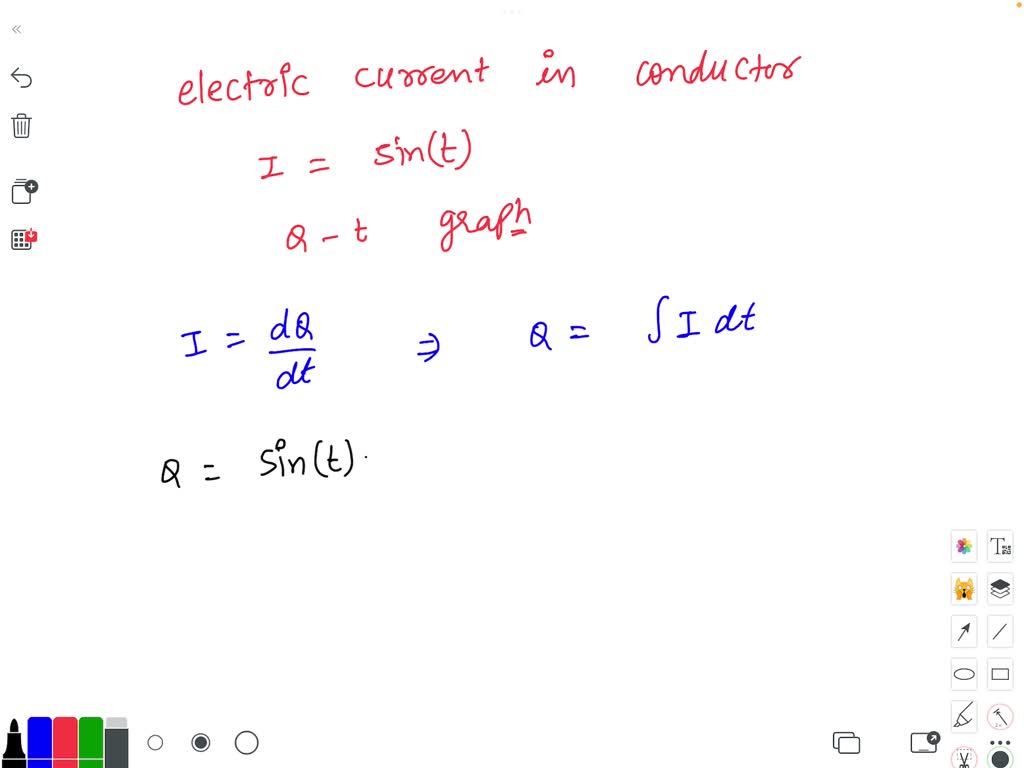 electric current in conductor
I = sin(t)
Q - t graph
I = dQ/dt ⇒ Q = ∫ I dt
Q = Sin(t).